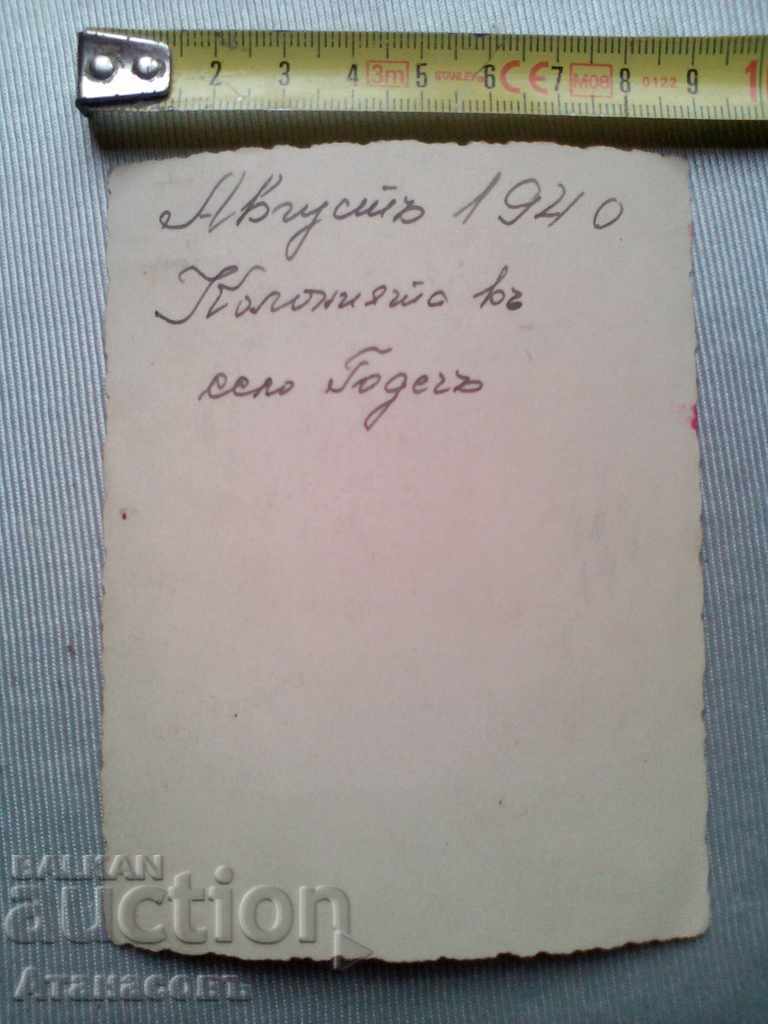 2 3 4 3m 5 STANLEY® 6 CE 7 M08 8 0122 9 1
Августъ 1940
Колонията въ
село Годечъ
BALKAN
auction
Атанасовъ